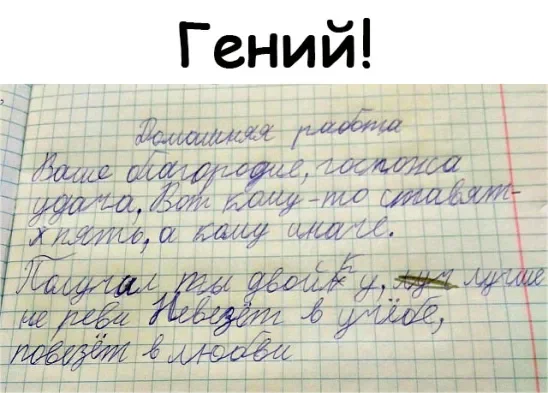 Гений!
Домашняя работа
Ваше благородие, госпожа
удача, Вот кому-то ставят
пять, а кому иначе.
Получил ты двойку, лучше
не реви Невезёт в учёбе,
повезёт в любви